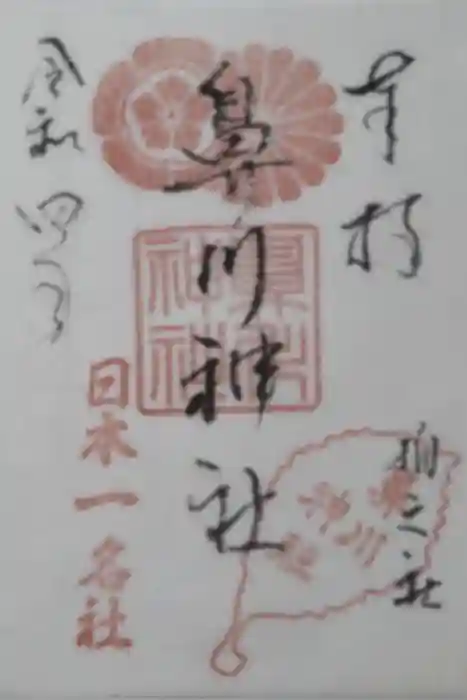 奉拝
鼻川神社
鼻川神社
令和四年
日本一名社
鼻川神社
楫之社